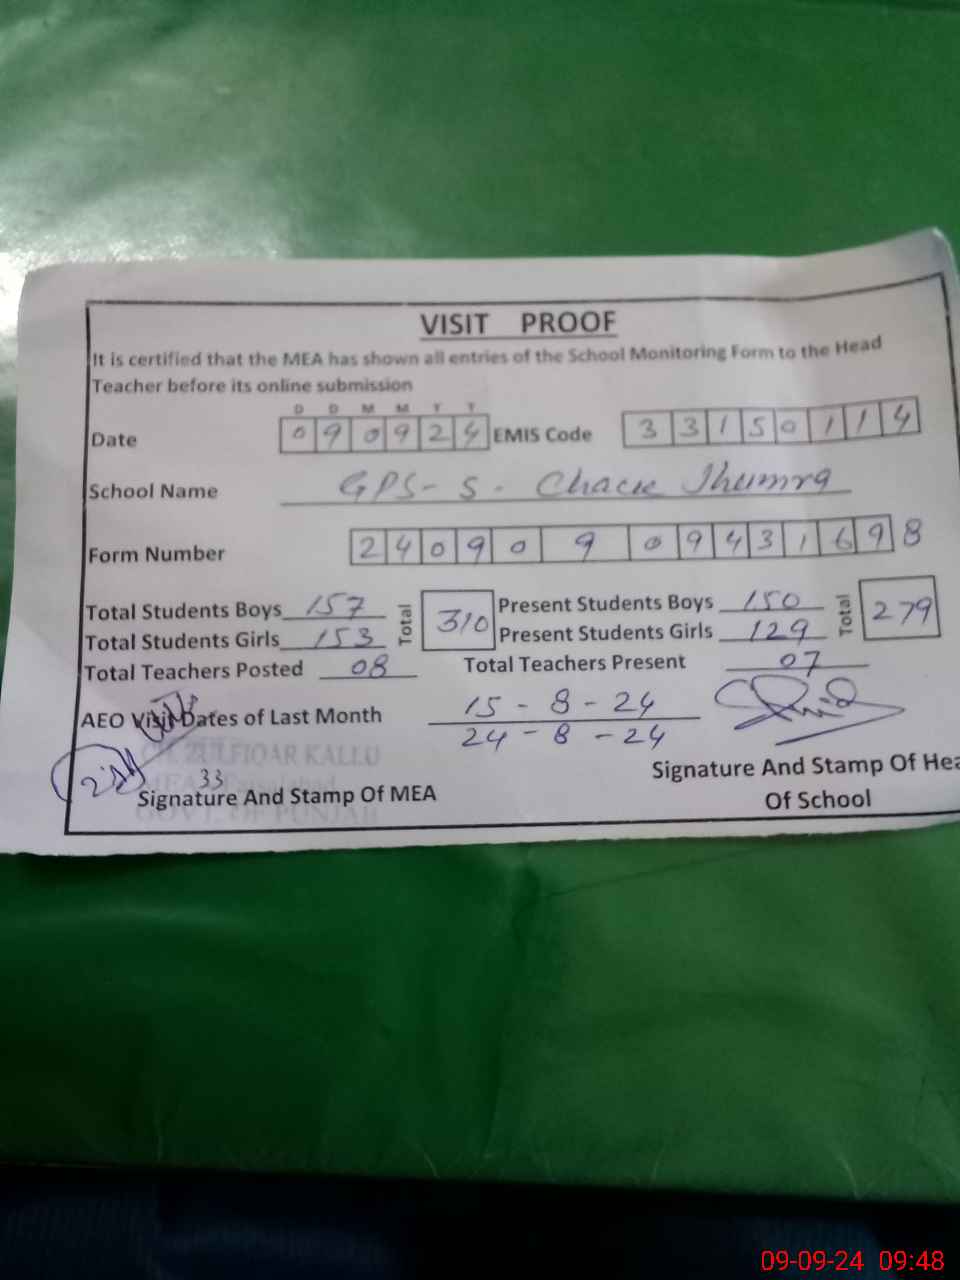 VISIT PROOF
It is certified that the MEA has shown all entries of the School Monitoring Form to the Head
Teacher before its online submission
D D M M Y Y
Date 0 9 0 9 2 4 EMIS Code 3 3 1 5 0 1 1 4
School Name GPS-5. Chack Jhumra
Form Number 2 4 0 9 0 9 0 9 4 3 1 6 9 8
Total Students Boys 157 Total 310 Present Students Boys 150 Total 279
Total Students Girls 153 Present Students Girls 129
Total Teachers Posted 08 Total Teachers Present 07
AEO Visit Dates of Last Month 15-8-24
24-8-24
CH. ZULFIQAR KALLU
33
MEA Faisalabad
Signature And Stamp Of MEA
GOVT. OF PUNJAB
Signature And Stamp Of Hea
Of School
09-09-24 09:48